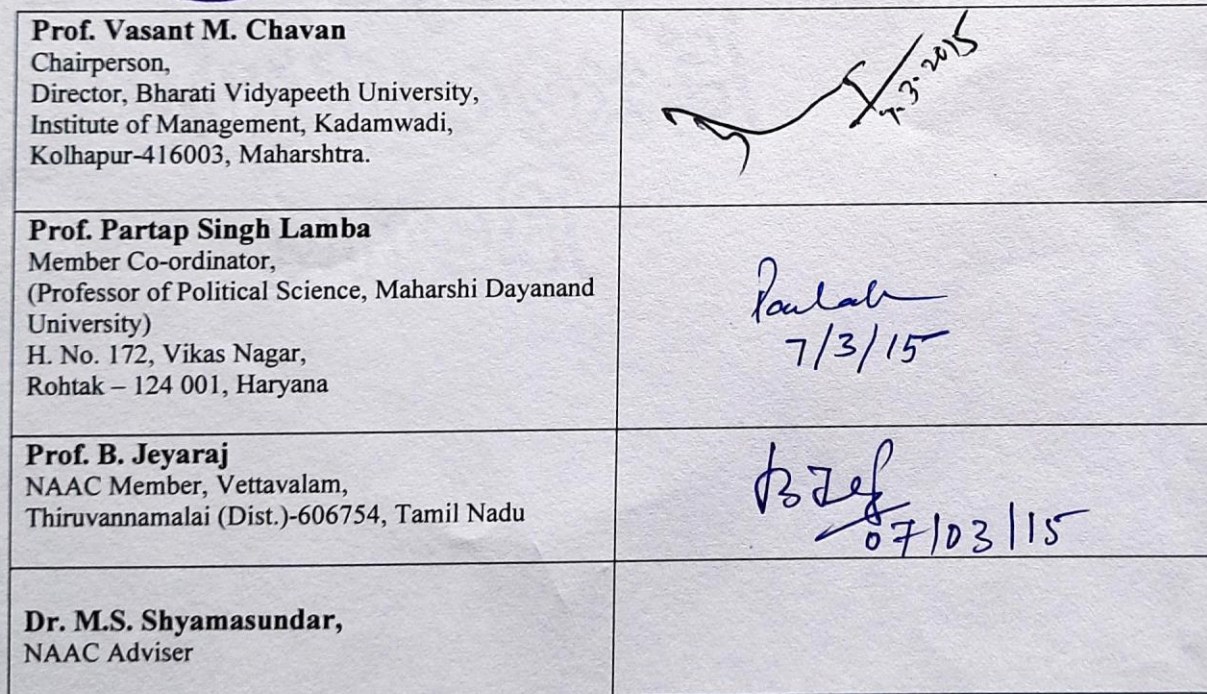 Prof. Vasant M. Chavan
Chairperson,
Director, Bharati Vidyapeeth University,
Institute of Management, Kadamwadi,
Kolhapur-416003, Maharshtra.
7-3-2015
Prof. Partap Singh Lamba
Member Co-ordinator,
(Professor of Political Science, Maharshi Dayanand
University)
H. No. 172, Vikas Nagar,
Rohtak – 124 001, Haryana
7/3/15
Prof. B. Jeyaraj
NAAC Member, Vettavalam,
Thiruvannamalai (Dist.)-606754, Tamil Nadu
07/03/15
Dr. M.S. Shyamasundar,
NAAC Adviser